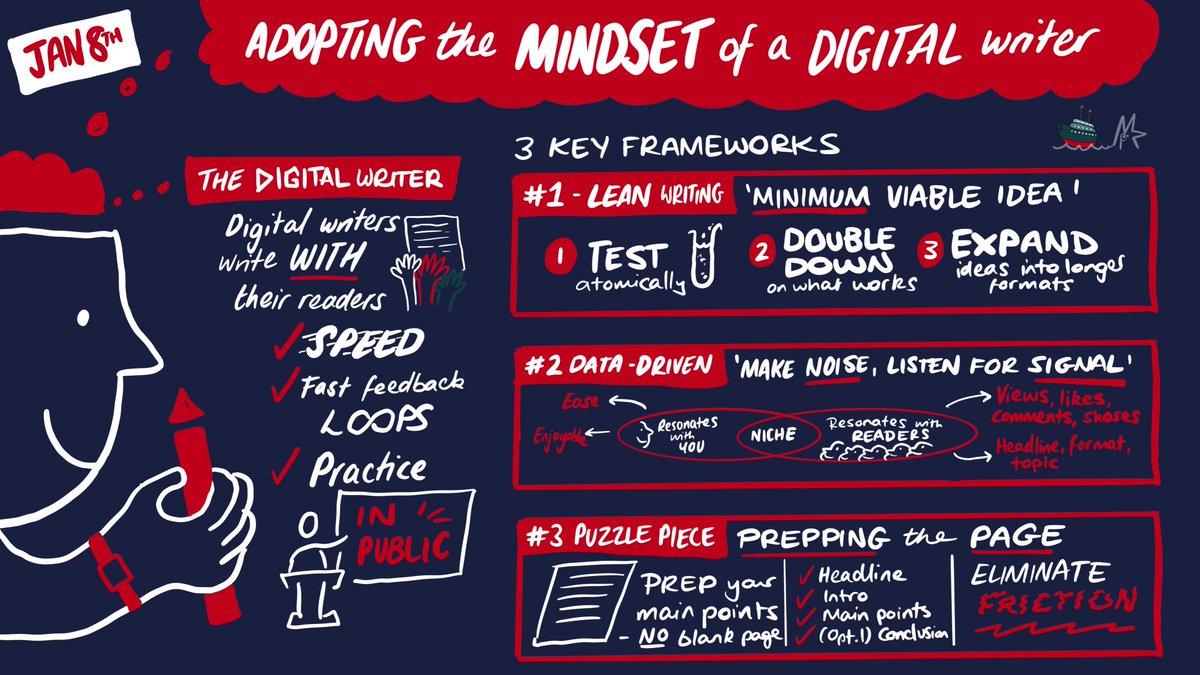 JAN 8TH
ADOPTING the MINDSET of a DIGITAL writer
THE DIGITAL WRITER
Digital writers
write WITH
their readers
SPEED
Fast feedback
LOOPS
Practice
IN
PUBLIC
3 KEY FRAMEWORKS
#1 - LEAN WRITING 'MINIMUM VIABLE IDEA'
1 TEST
atomically
2 DOUBLE
DOWN
on what works
3 EXPAND
ideas into longer
formats
#2 DATA-DRIVEN 'MAKE NOISE, LISTEN FOR SIGNAL'
Ease
Enjoyable
Resonates
with
YOU
NICHE
Resonates with
READERS
Views, likes,
comments, shares
Headline, format,
topic
#3 PUZZLE PIECE PREPPING the PAGE
PREP your
main points
- NO blank page
Headline
Intro
Main points
(Opt.l) Conclusion
ELIMINATE
FRICTION